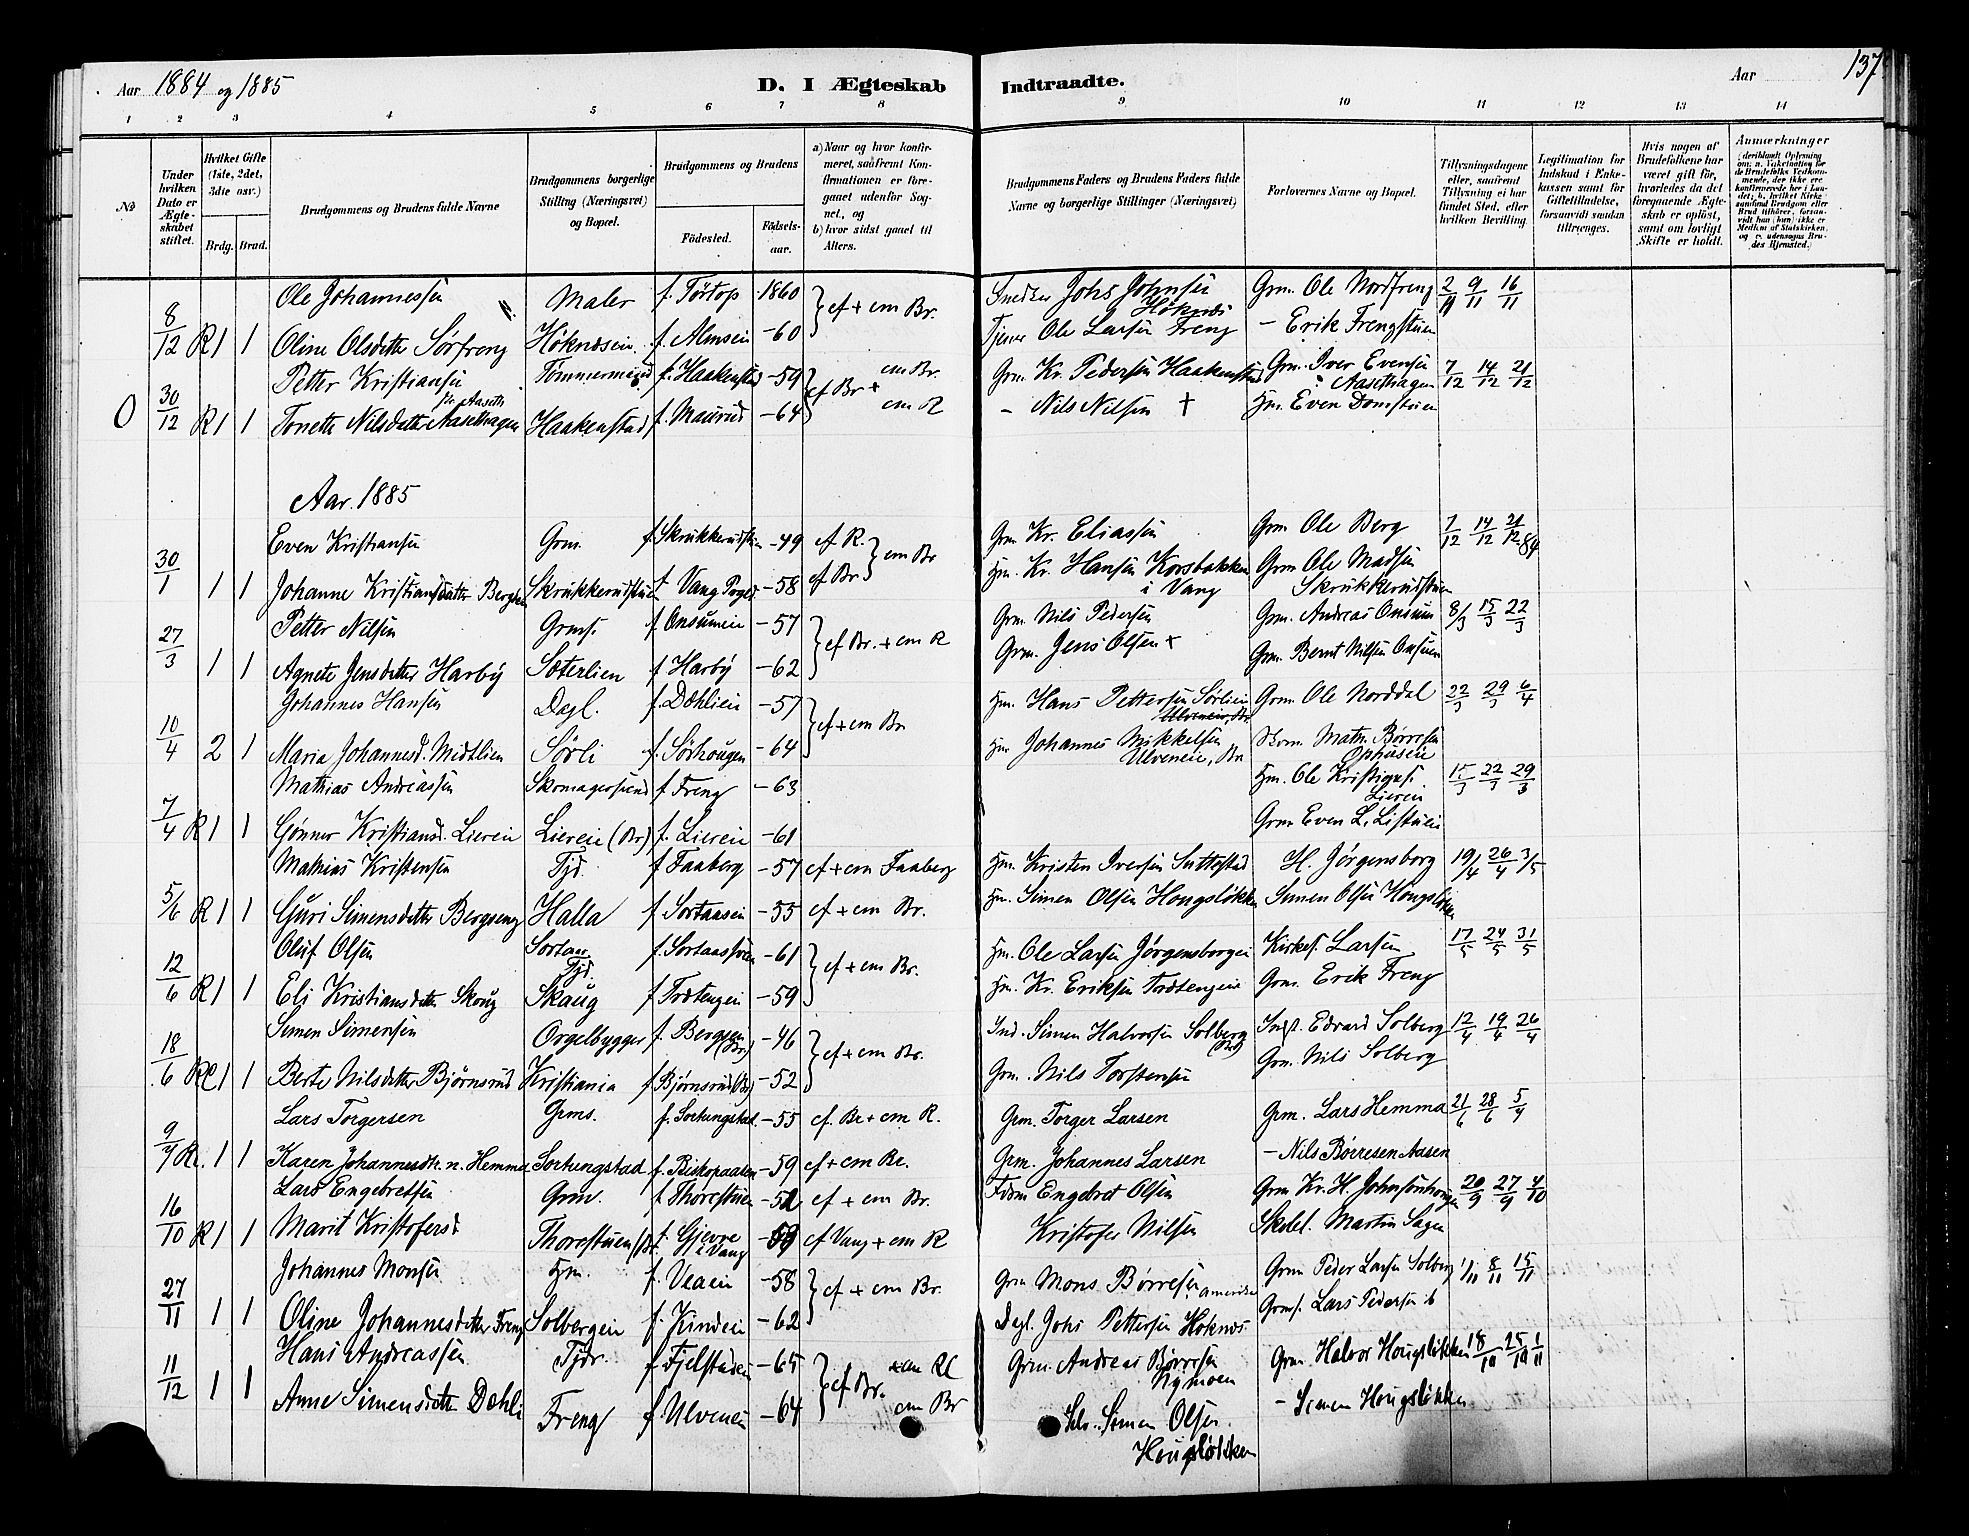 Aar 1884 og 1885
D. I Ægteskab Indtraadte.
Aar
137
1 2 3 4 5 6 7 8 9 10 11 12 13 14
No
Under hvilken Dato er Ægteskabet stiftet.
Hvilket Gifte (1ste, 2det, 3die osv.)
Brdg. Brud.
Brudgommens og Brudens fulde Navne
Brudgommens borgerlige Stilling (Næringsvei) og Bopæl.
Brudgommens og Brudens
Fødested.
Fødselsaar.
a) Naar og hvor konfirmeret, saafremt Konfirmationen er foregaaet udenfor Sognet, og
b) hvor sidst gaaet til Alters.
Brudgommens Faders og Brudens Faders fulde Navne og borgerlige Stillinger (Næringsvei)
Forlovernes Navne og Bopæl.
Tillysningsdagene eller, saafremt Tillysning ei har fundet Sted, efter hvilken Bevilling.
Legitimation for Indskud i Enkekassen samt for Giftetilladelse, forsaavidt saadan tiltrænges.
Hvis nogen af Brudefolkene har været gift før, hvorledes da det foregaaende Ægteskab er opløst, samt om lovligt Skifte er holdt.
Anmærkninger
Ole Johannessen Maler f. Törtop 1860 } cf + cm Br. Snedker Johs Johnsen Höknæs Grm. Ole Nordfreng 2/11 9/11 16/11
8/12 R 1 1 Oline Olsdatter Sørfreng Höknæsein f. Almsein -60 Tjener Ole Larsen Freng - Erik Frengstuen
Petter Kristiansen Tømmermand f. Haakenstad -59 } cf Br + cm Br. Grm. Kr. Pedersen Haakenstad Grm. Iver Evensen Aasethagen 7/12 14/12 21/12
O 30/12 R 1 1 Tonette Nilsdatter Aasethagen Haakenstad f. Maurud -64 cm R - Nils Nilsen + Hm. Even Domstuen
Aar. 1885
Even Kristiansen Grm. f. Skrukkerudstuen -49 cf R. } cm Br Grm. Kr. Eliassen Grm. Ole Berg 7/12 14/12 21/12 84
30/1 1 1 Johanne Kristiansdatter Skrukkerudstuen f. Vang -58 cf Br Hm. Kr. Hansen Korsbakken i Vang Grm Ole Madsen Skrukkerudstuen
Petter Nilsen Grms. f. Onsumein -57 } cf Br. + cm R Grm. Nils Pedersen Grm. Andreas Onsum 8/3 15/3 22/3
27/3 1 1 Agnete Jensdatter Harby Sæterlien f Harby -62 Grm. Jens Olsen + Grm. Bernt Nilsen Onsum
Johannes Hansen Dagl. f. Dæhliein -57 } cf + cm Br Hm. Hans Pettersen Sørliein Grm. Ole Norddal 22/3 29/3 6/4
10/4 2 1 Maria Johannesd. Midtlien Sørli f. Sørhougen -64 Hm Johannes Mikkelsen Ulvenein, Br Math. Børresen Ophusein
Mathias Andreassen Skomagersvend f Freng -63 Hm. Ole Kristians. Lierein 15/3 22/3 29/3
7/4 R 1 1 Gønner Kristiansd. Lierein Lierein (Br) f. Lierein -61 Grm Even L. Listuen
Mathias Kristensen Tjd. f Faaberg -57 cf + cm Faaberg Hm. Kristen Iversen Suttestad H. Jørgensborg 19/4 26/4 3/5
5/6 R 1 1 Guri Simensdatter Bergseng Halla f Sortaasen -55 cf + cm Br. Hm. Simen Olsen Hougsløkken Simen Olsen Hougsløkken
Oluf Olsen Tjd. f. -61 } cf + cm Br. Hm. Ole Larsen Jørgensborgein Kirkes. Larsen 17/5 24/5 31/5
12/6 R 1 1 Eli Kristiansdatter Skoug Skaug f Trætengein -59 Hm. Kr. Eriksen Trætengein Grm. Erik Freng
Simen Simensen Orgelbygger f. Bergseng (Br) -46 } cf + cm Br. Ind. Simen Halvorsen Solberg (Br) Inds. Edvard Solberg 12/4 19/4 26/4
18/6 R 1 1 Berte Nilsdatter Bjørnsrud Kristiania f Bjørnsrud (Br) -52 Grm. Nils Torstensen Grm. Nils Solberg
Lars Torgersen Grms. f. Sortungstad -55 cf. Br + cm R. Grm. Torger Larsen Grm. Lars Hemma 21/6 28/6 5/7
9/7 R. 1 1 Karen Johannesdtr. n. Hemma Sortungstad f. Biskopaalen -59 cf + cm Br. Grm. Johannes Larsen - Nils Børresen Aasen
Lars Engebretsen Grm. f Thorestuen -52 cf + cm Br. Engebret Olsen Grm Kr. H. 20/9 27/9 4/10
16/10 R 1 1 Marit Kristofersd Thorestuen f. Gjevre i Vang -59 cf Vang + cm R Kristofer Nilsen Skolel. Martin Sagen
Johannes Monsen Hm. f. Veaein -58 } cf + cm Br. Grm Mons Børresen i Amerika Grm Peder Larsen Solberg 1/11 8/11 15/11
27/11 1 1 Oline Johannesdatter Freng Solbergein f. Kindein -62 Dagl. Johs Pettersen Höknæs. Grms. Lars Pedersen ib
Hans Andreassen Tjdr. f. Fjelstadein -65 } cf Br. cm R Grm. Andreas Børresen Nymoen Grm Halvor Hougsløkken 18/10 25/10 1/11
11/12 1 1 Anne Simensdatter Dæhli Freng f Ulvenein -64 cm Br Selv. Simen Olsen Hougsløkken - Simen Hougsløkken